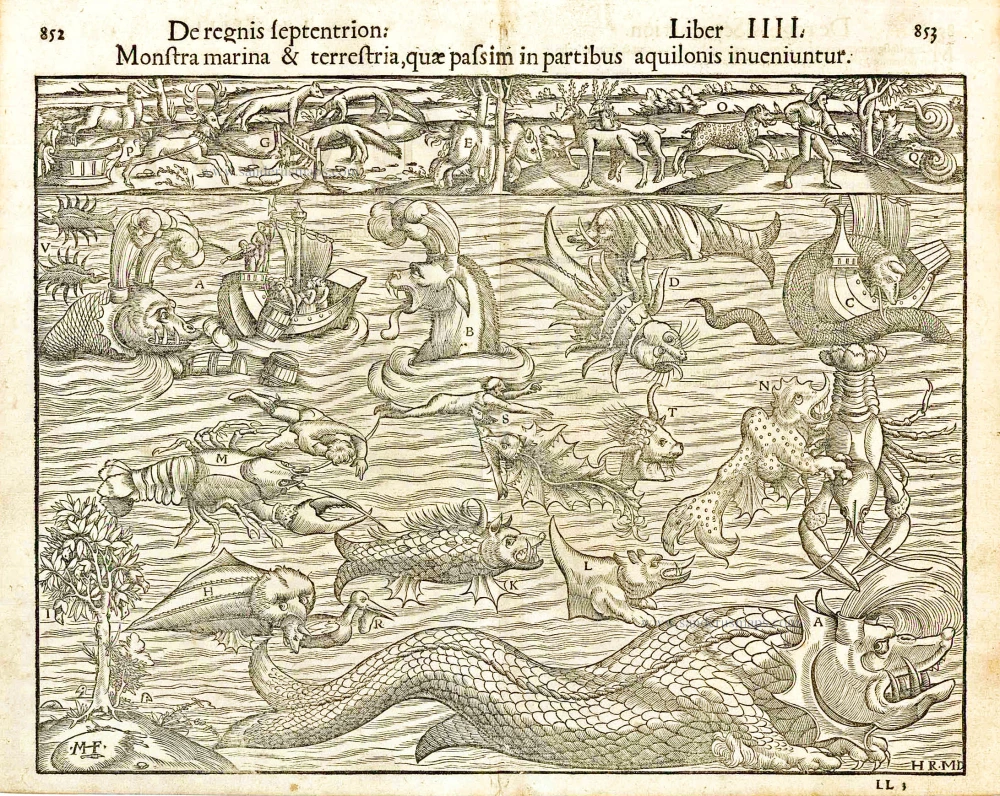 852 De regnis ſeptentrion: Liber IIII. 853
Monſtra marina & terreſtria, quæ paſsim in partibus aquilonis inueniuntur.
P G E F O Q
V A B D C
S T N
M
H R K L
I A
·MF·
HR·MD
LL 3